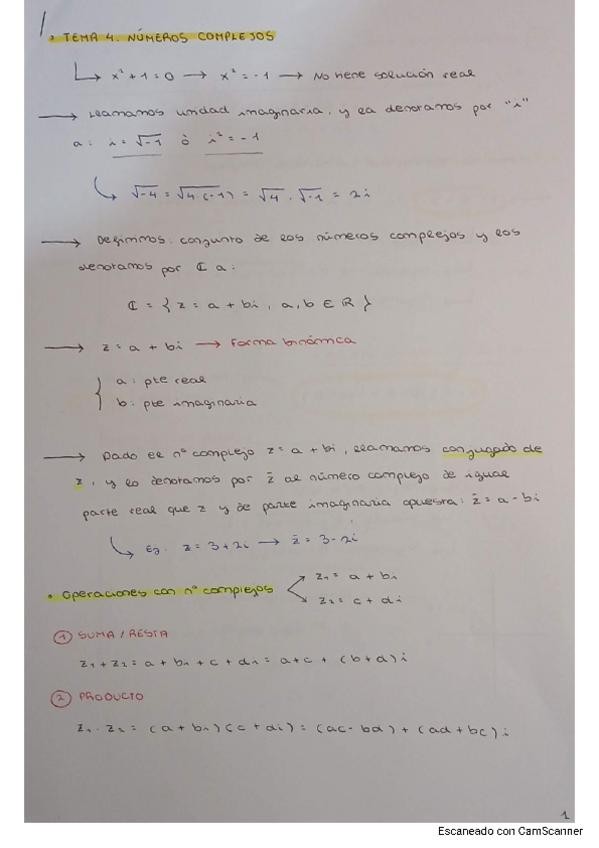 • TEMA 4. NÚMEROS COMPLEJOS
x² + 1 = 0 → x² = -1 → No tiene solución real
→ Llamamos unidad imaginaria, y la denotamos por "i"
a: i = √-1 ò i² = -1
√-4 = √4·(-1) = √4 · √-1 = 2i
→ Definimos conjunto de los números complejos y los
denotamos por ℂ a:
ℂ = { z = a + bi, a, b ∈ ℝ }
→ z = a + bi → Forma binómica
a: pte real
b: pte imaginaria
→ Dado el nº complejo z = a + bi, llamamos conjugado de
z, y lo denotamos por z̄ al número complejo de igual
parte real que z y de parte imaginaria opuesta: z̄ = a - bi
Ej. z = 3 + 2i → z̄ = 3 - 2i
• Operaciones con nº complejos
z₁ = a + bi
z₂ = c + di
① SUMA / RESTA
z₁ + z₂ = a + bi + c + di = a + c + (b + d) i
② PRODUCTO
z₁ · z₂ = (a + bi) (c + di) = (ac - bd) + (ad + bc) i
1
Escaneado con CamScanner